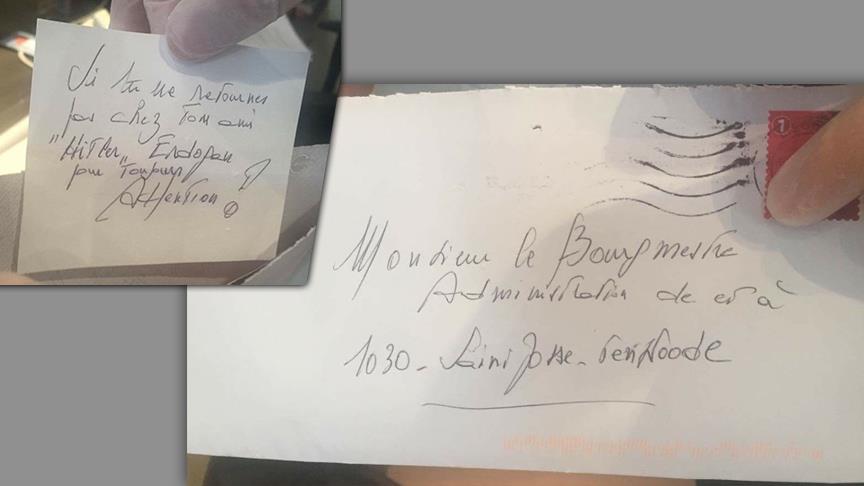 Si tu ne retournes
pas chez Ton ami
"Hitler" Erdogan
pour Toujours !
Attention !
1
Monsieur le Bourgmestre
Administration de et à
1030 - Saint Josse - Ten Noode